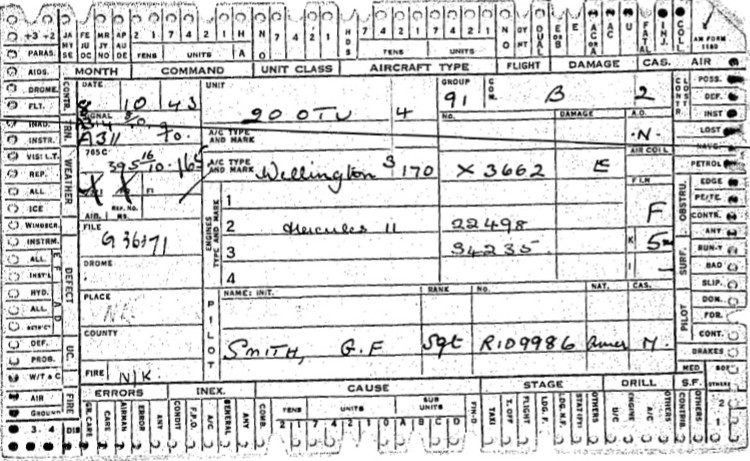 +3 +2 JA MY SE FE JU OC MR JY NO AP AU DE 2 1 7 4 2 1 H A HDS 7 4 2 1 7 4 2 1 NO DUAL E AC U FATAL INJ. COLL AM FORM 1180
TENS UNITS TENS UNITS
PARAS. MONTH COMMAND UNIT CLASS AIRCRAFT TYPE FLIGHT DAMAGE CAS. AIR
AIDS. POSS.
DROME. CONTR. DATE UNIT GROUP COM. CONTR LOST DEF.
FLT. 8 10 43 20 OTU 4 91 B 2 INST
INAD. SIGNAL NO. DAMAGE A.O. LOST
INSTR. A311 70. A/C TYPE AND MARK N.
VISI L.T. 765C A/C TYPE AND MARK Wellington 170 X3662 E AIR COLL PETROL
REP. WEATHER 395 16/10
ALL FIN EDGE
ICE AIR. REP. No. ENGINES TYPE AND MARK 1 OBSTRU.
WINDSCR. FILE 2 Hercules 11 22498 F CONTR.
INSTRM. G36371 3 34235 K 5 ANY
ALL DROME 4 I SURF. RUN-Y
INST'L DEFECT BAD
HYD. PLACE PILOT NAME: INIT. RANK No. NAT. CAS. SLIP.
ALL PILOT DOM.
COUNTY FOR.
DEF. UC. SMITH, G.F Sgt R109986 M. CONT.
PROB. BRAKES
W/T & C FIRE N/K MED
AIR FIRE ERRORS INEX. CAUSE STAGE DRILL S.F. OTHERS
GROUND ER. CARE CARE AIRMAN ERROR ANY CONDIT F.P.O. A/C GENERAL ANY COMB. TENS UNITS SUB UNITS TAXI T. OFF FLIGHT LDG. F. LDG. N.F. OTHERS U/C ENGINE A/C OTHERS CONTRIB. OTHERS 2
3 4 DIS 2 1 7 4 2 1 0 A B C D 1